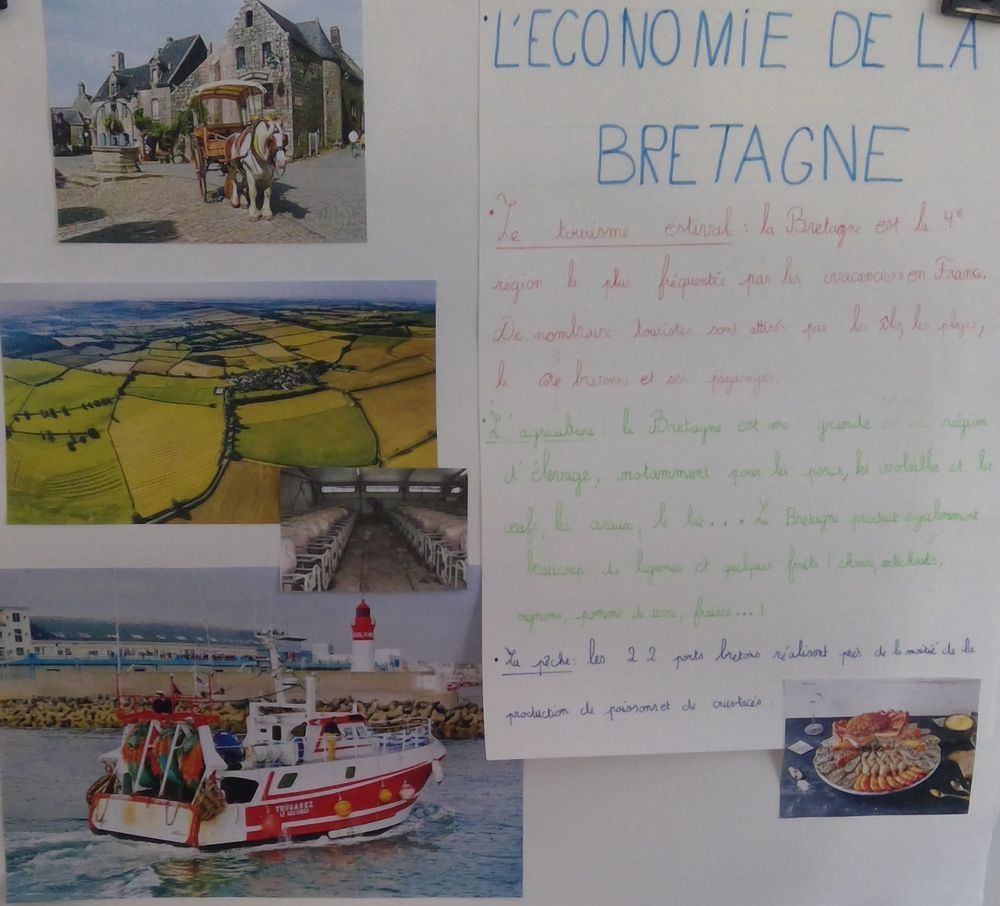 L'ECONOMIE DE LA
BRETAGNE
Le tourisme estival : la Bretagne est la 4e
région la plus fréquentée par les vacanciers en France.
De nombreux touristes sont attirés par les îles, les plages,
la côte bretonne et ses paysages.
L'agriculture : la Bretagne est une grande région
d'élevage, notamment pour les porcs, les volailles et les
oeufs, les veaux, le lait... La Bretagne produit également
beaucoup de légumes et quelques fruits (choux, artichauts,
oignons, pomme de terre, fraises...)
La pêche : les 22 ports bretons réalisent près de la moitié de la
production de poissons et de crustacés.
TRUGAREZ